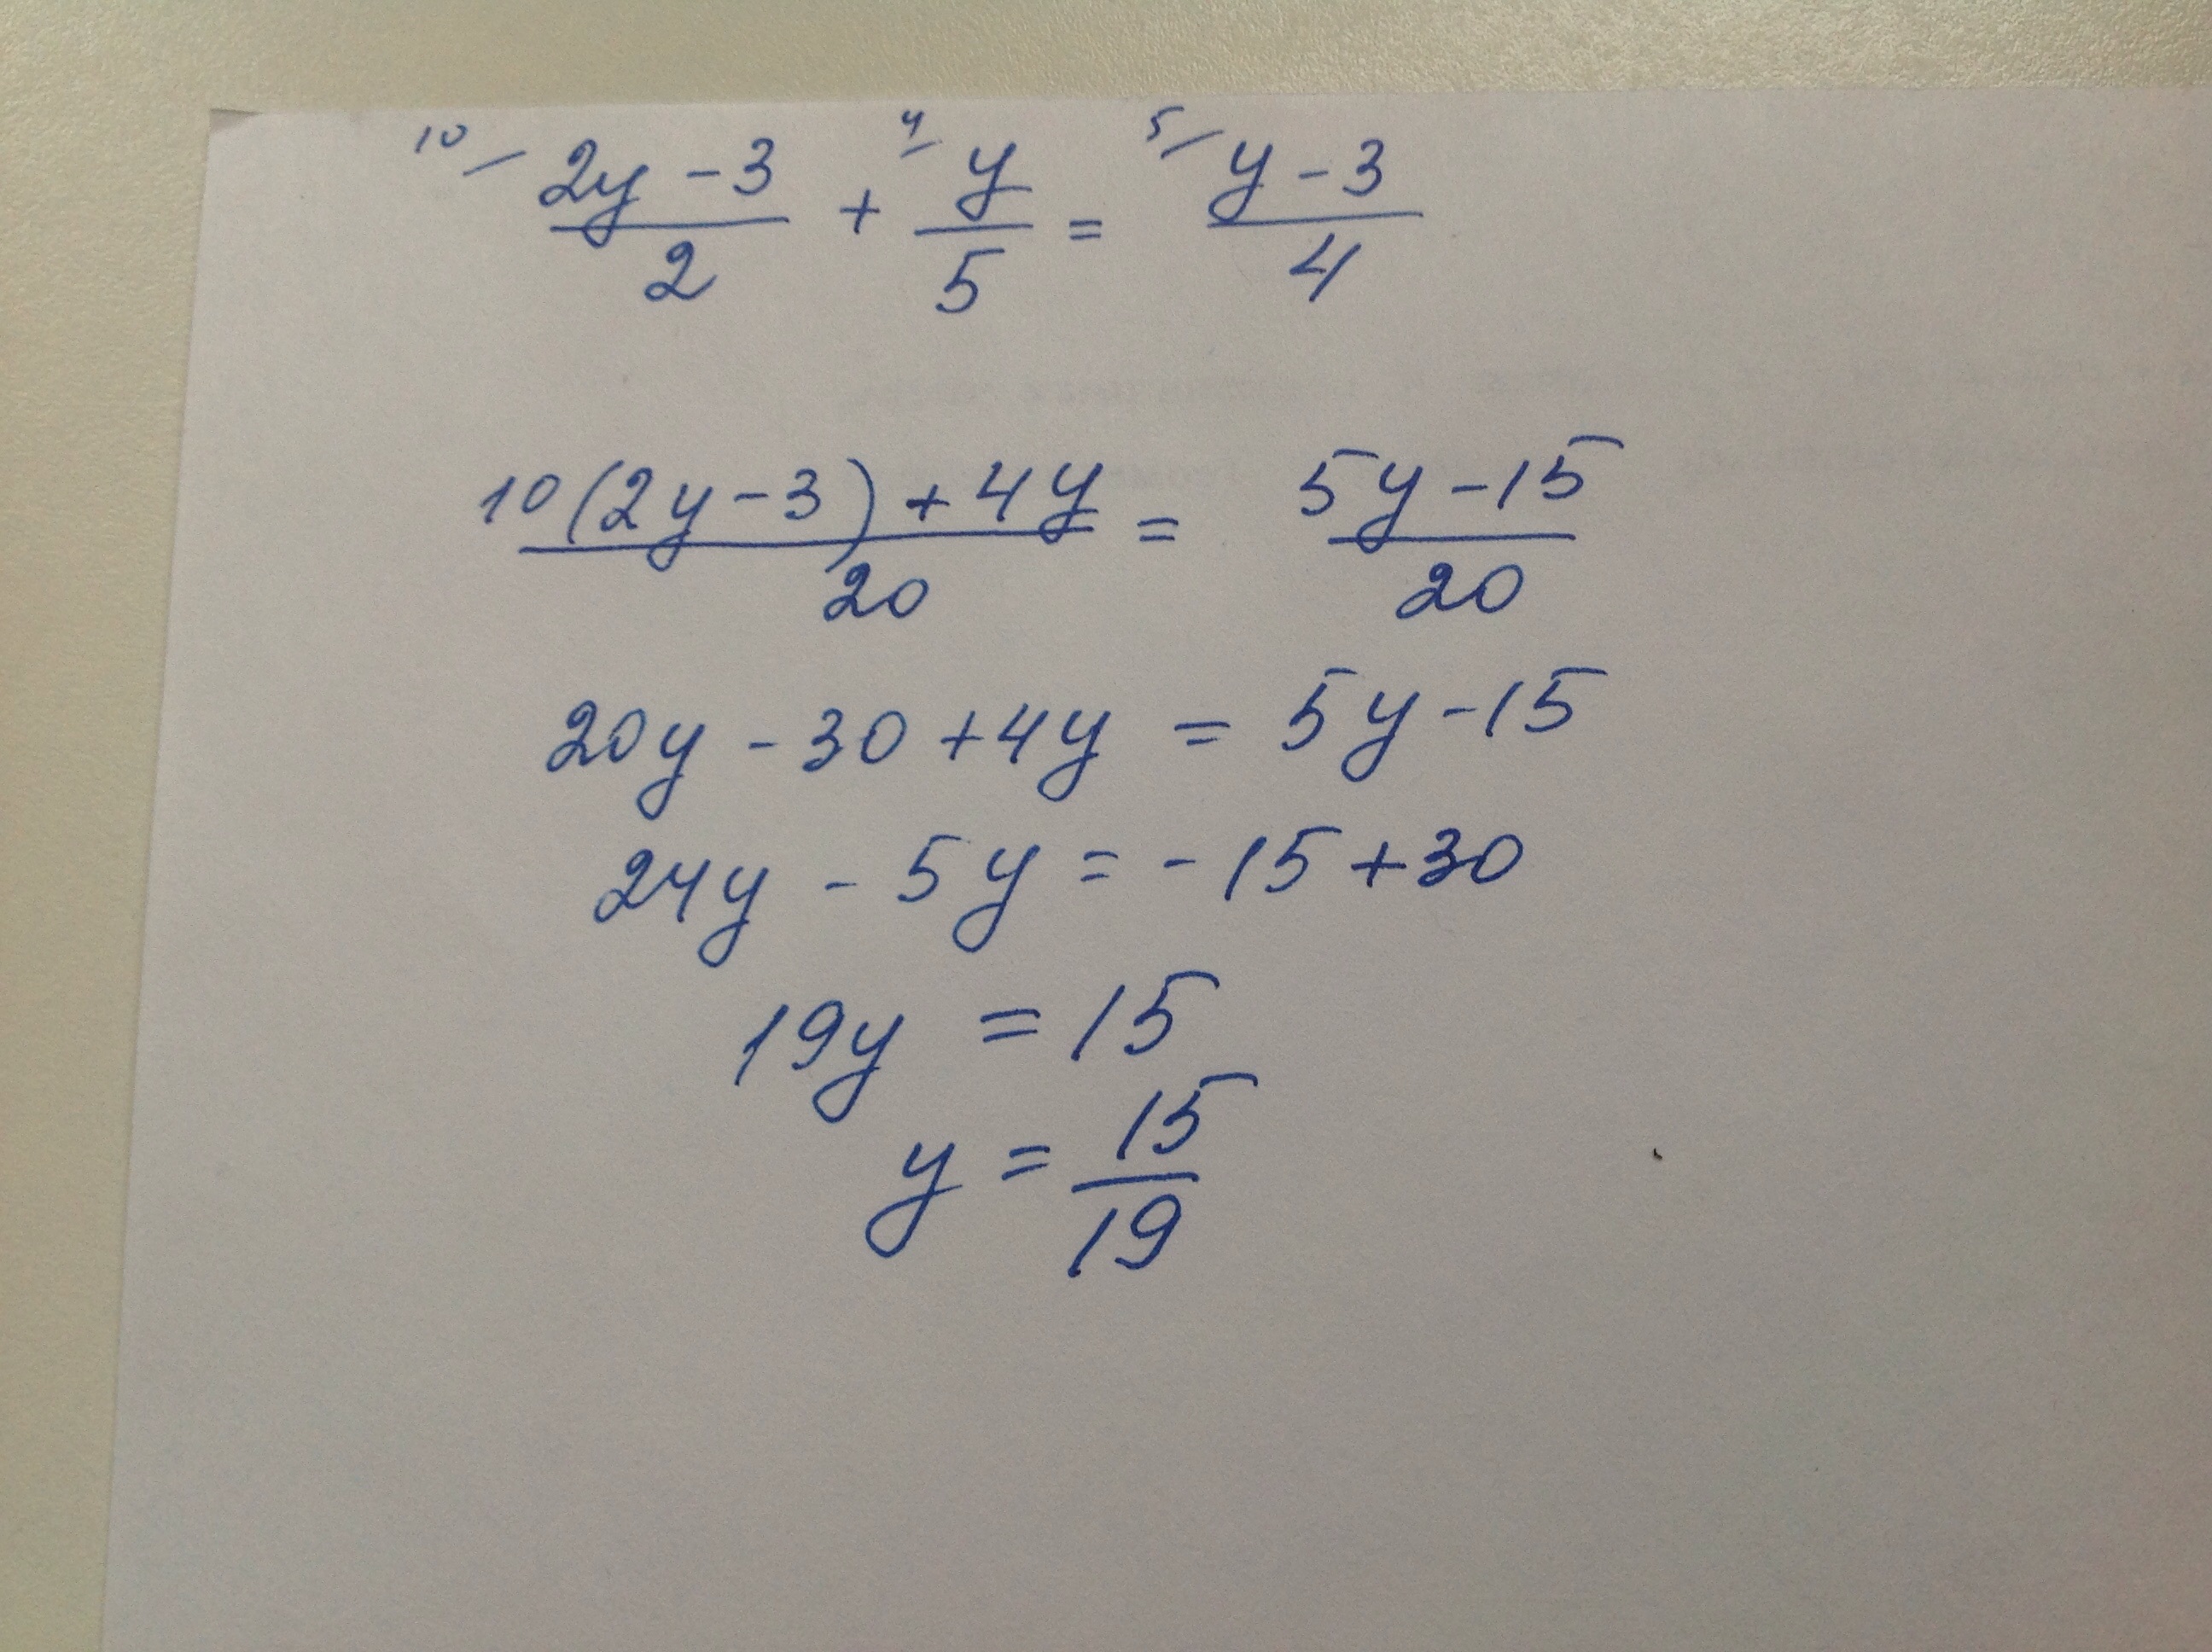 10/ (2y - 3)/2 + 4/ y/5 = 5/ (y - 3)/4
(10(2y - 3) + 4y)/20 = (5y - 15)/20
20y - 30 + 4y = 5y - 15
24y - 5y = - 15 + 30
19y = 15
y = 15/19